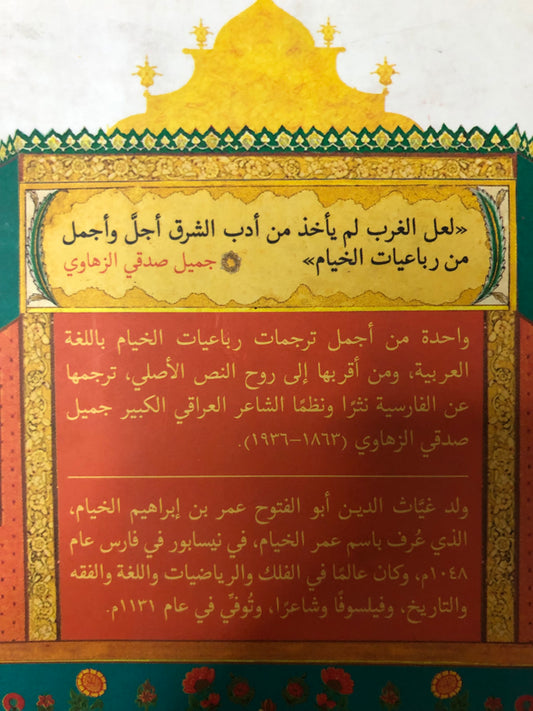 «لعل الغرب لم يأخذ من أدب الشرق أجلَّ وأجمل
من رباعيات الخيام» جميل صدقي الزهاوي
واحدة من أجمل ترجمات رباعيات الخيام باللغة
العربية، ومن أقربها إلى روح النص الأصلي، ترجمها
عن الفارسية نثرًا ونظمًا الشاعر العراقي الكبير جميل
صدقي الزهاوي (١٨٦٣–١٩٣٦).
ولد غيَّاث الدين أبو الفتوح عمر بن إبراهيم الخيام،
الذي عُرف باسم عمر الخيام، في نيسابور في فارس عام
١٠٤٨م، وكان عالمًا في الفلك والرياضيات واللغة والفقه
والتاريخ، وفيلسوفًا وشاعرًا، وتُوفِّيَ في عام ١١٣١م.